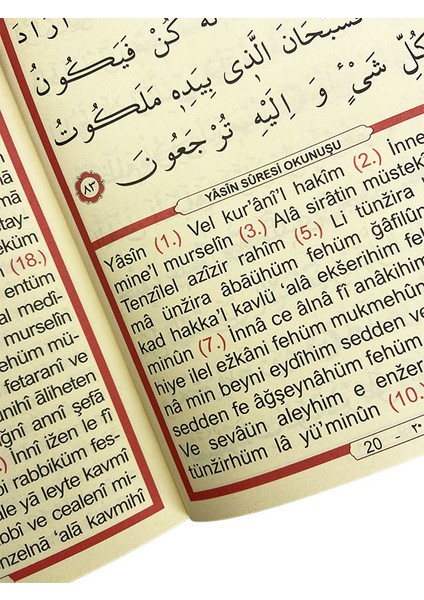 اَرَادَ
لَهُ كُنْ فَيَكُونُ
فَسُبْحَانَ الَّذٖى بِيَدِهٖ مَلَكُوتُ
كُلِّ شَىْءٍ وَ اِلَيْهِ تُرْجَعُونَ
٨٣
YÂSİN SÛRESİ OKUNUŞU
Yâsîn (1.) Vel kur'âni'l hakîm (2.) İnne
mine'l murselîn (3.) Alâ sirâtin müstekî
Tenzîlel azîzir rahîm (5.) Li tünžira
mâ ünžira âbâühüm fehüm ğâfilûn
kad hakka'l kavlü 'alâ ekšerihim feh
minûn (7.) İnnâ ce âlnâ fî anâkihim
hiye ilel ežkâni fehüm mukmehûn
nâ min beyni eydîhim sedden ve
sedden fe âğşeynâhüm fehüm
Ve sevâün aleyhim e enžer
tünžirhüm lâ yü'minûn (10.)
20 - ٢٠
tay-
eküm
(18.)
entüm
al medî-
murselîn
ehüm mü-
fetaranî ve
unihî âliheten
ğnî annî şefâ
İnnî ižen le fî
bi rabbiküm fes-
le yâ leyte kavmî
bbî ve cealenî mi-
nzelnâ 'alâ kavmihî